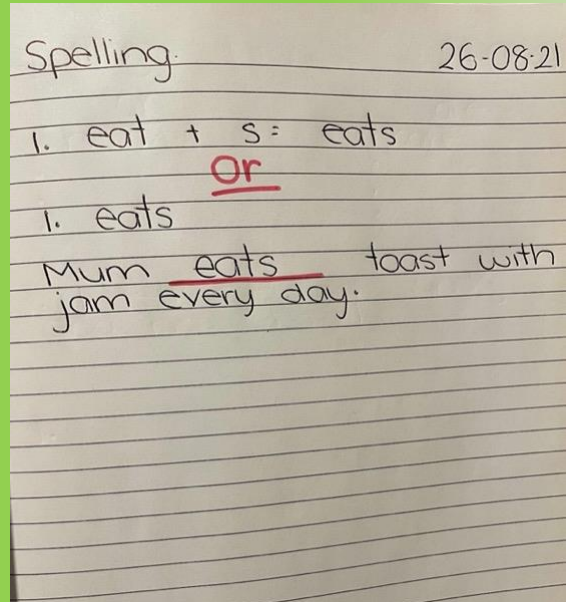 Spelling. 26-08-21
1. eat + s = eats
or
1. eats
Mum eats toast with
jam every day.